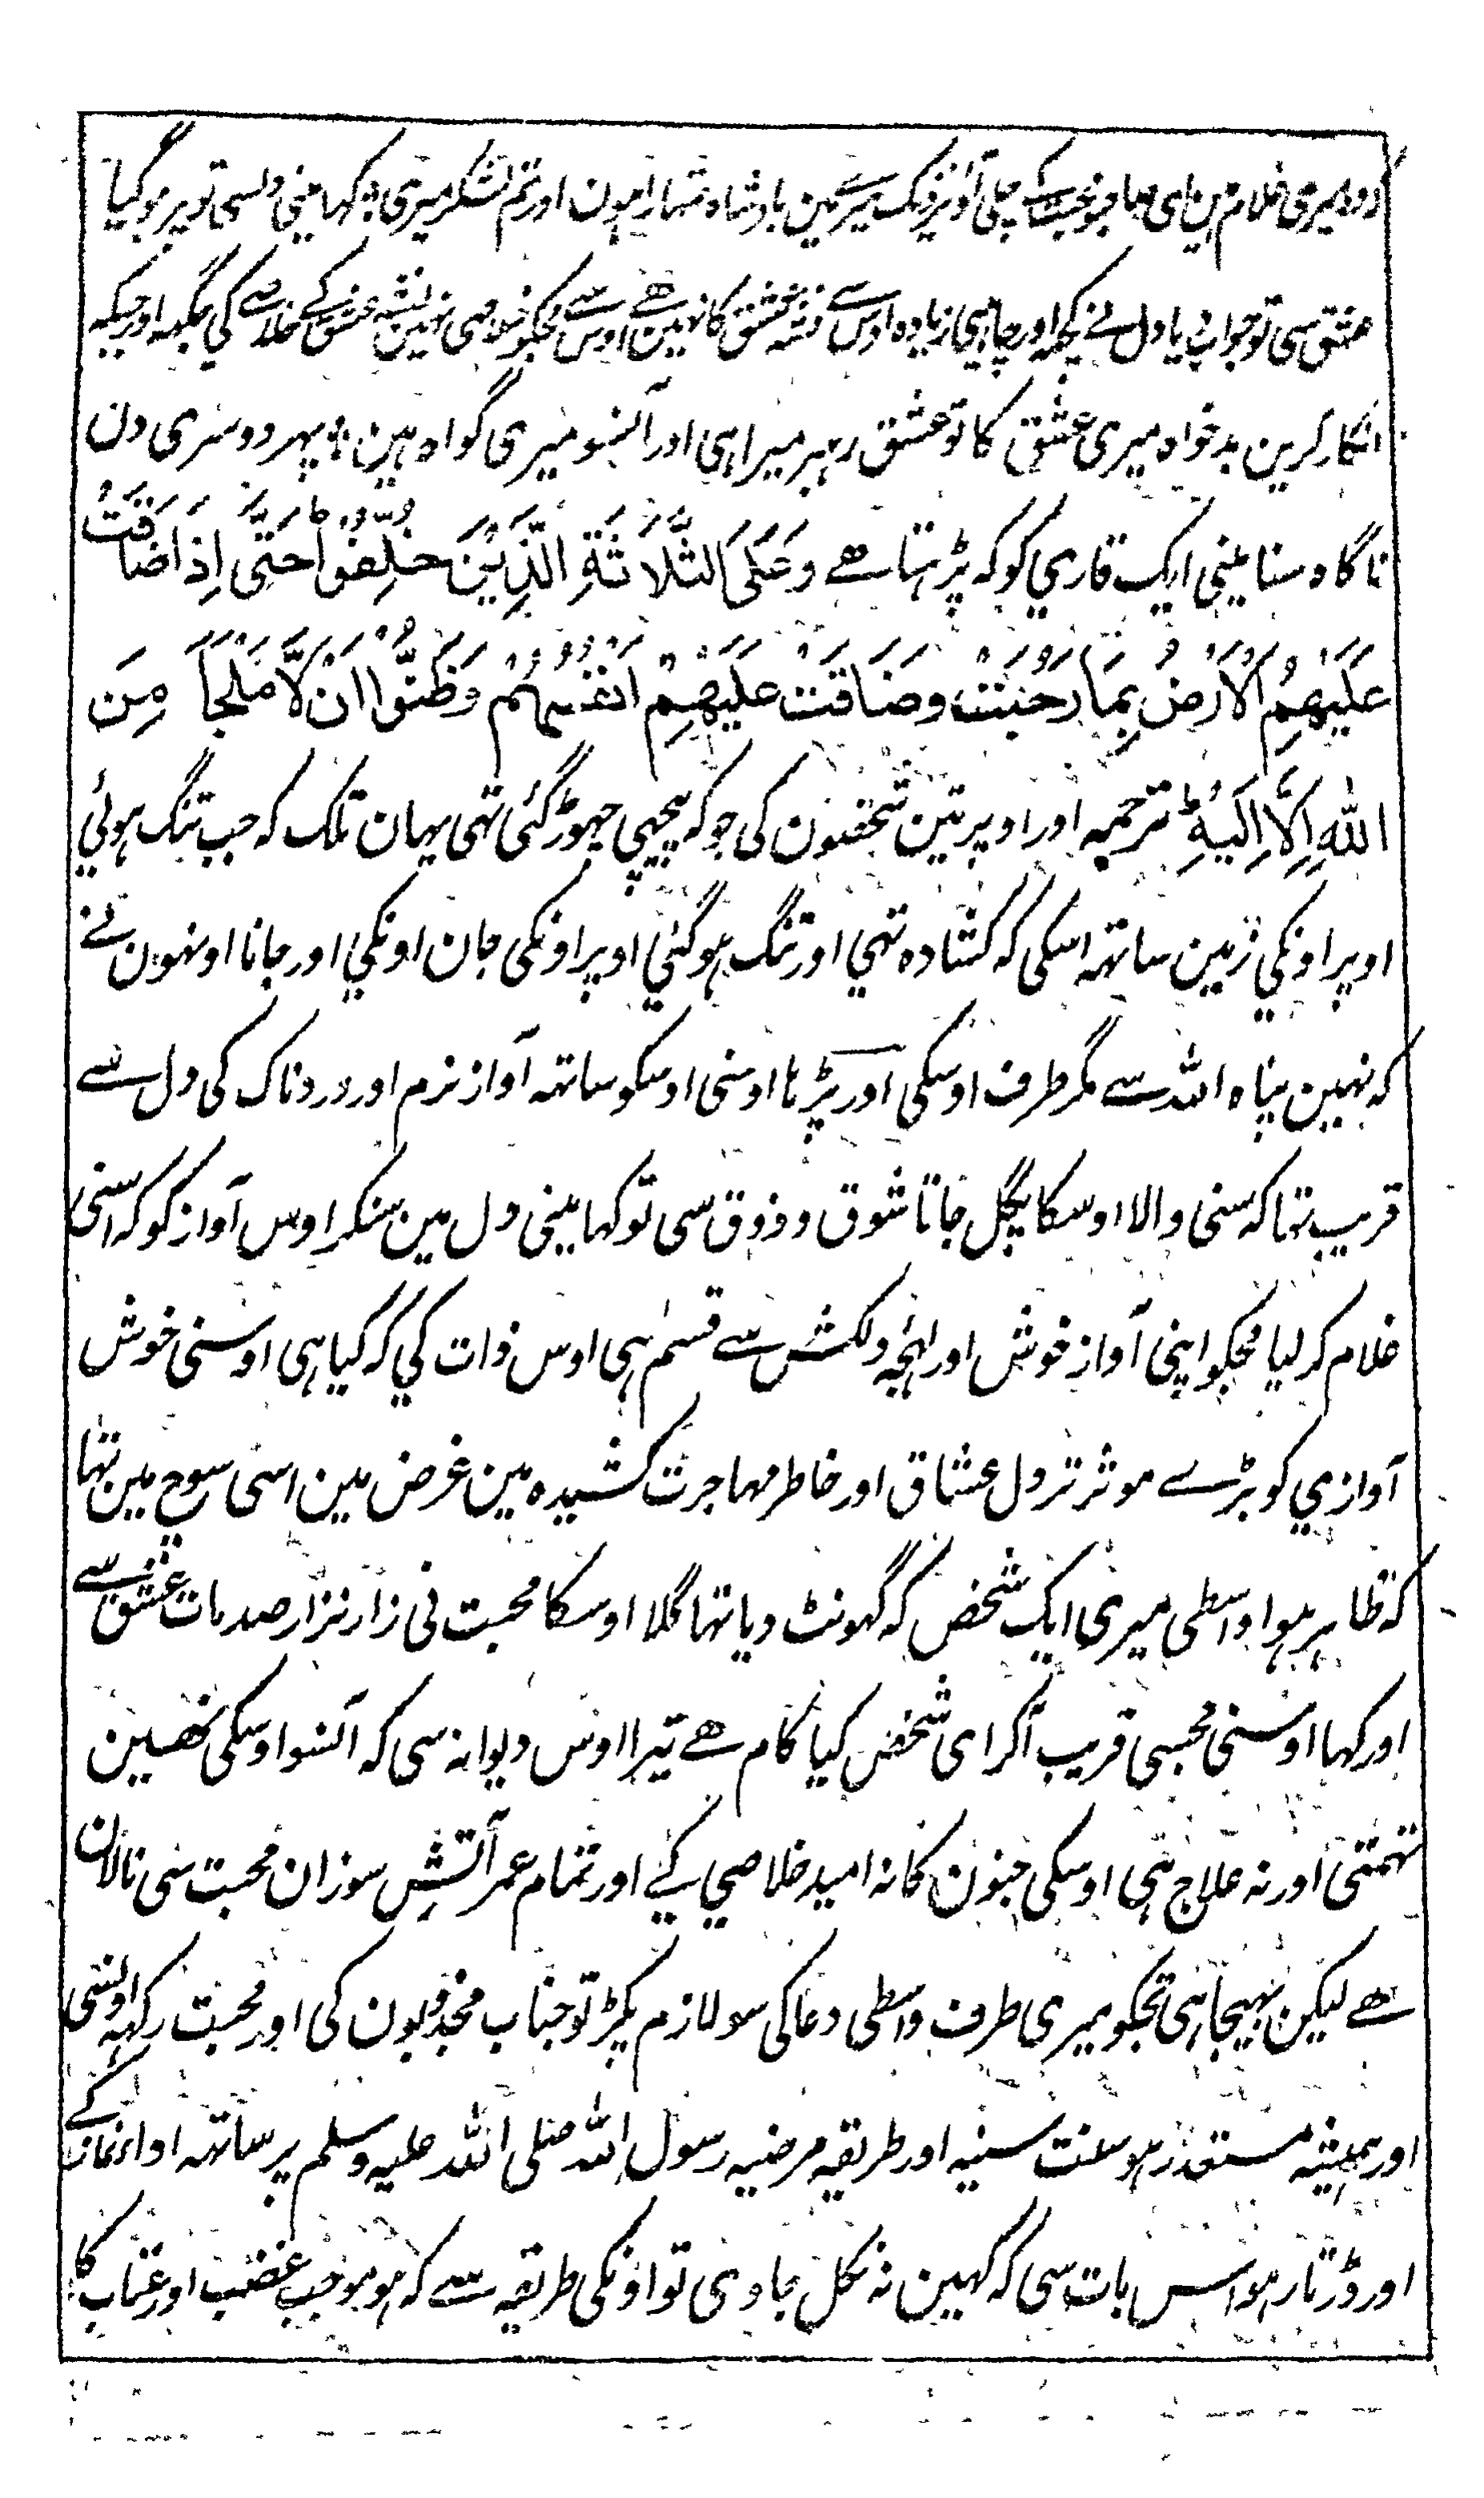 میری غلام ہین ای صاحبو محبت کے چلی آؤ نزدیک میرے مین بادشاہ تمہارا ہون اور تم لشکر میری ؛ کہا مینی دلسی تو پر ہوگیا
عشق سی تو جواب دیا دل نے کچھ اور چاہی زیادہ اوس سے نشہ عشق کا نہین ہے اوس سے مجکو خلاصی نہین نشہ عشق کے خلاصے کی جگہہ اور جبکہ
انکار کرین بدخواہ میری عشق کا تو عشق رہبر میرا ہی اور آنسو میری گواہ ہین ؛ پہر دوسری دن
ناگاہ سنا مینی ایک قاری کو کہ پڑہتا ہے وَعَلَى الثَّلَاثَةِ الَّذِيْنَ خُلِّفُوْا حَتّٰى اِذَا ضَاقَتْ
عَلَيْهِمُ الْاَرْضُ بِمَا رَحُبَتْ وَضَاقَتْ عَلَيْهِمْ اَنْفُسُهُمْ وَظَنُّوْا اَنْ لَّا مَلْجَاَ مِنَ
اللهِ اِلَّا اِلَيْهِ ط ترجمہ اور اوپر تین شخصون کی جو کہ پیچہی چہوڑ گئی تہی یہان تلک کہ جب تنگ ہوئی
اوپر اونکی زمین ساتہہ اسکی کہ کشادہ تہی اور تنگ ہوگئی اوپر اونکی جان اونکی اور جانا اونہون نے
کہ نہین پناہ اللہ سے مگر طرف اوسکی اور پڑہا اوسنی اوسکو ساتہہ آواز نرم اور دردناک کی دل سے
قریب تہا کہ سنی والا اوسکا پگہل جاتا شوق و ذوق سی تو کہا مینی دل مین سنکر اوس آواز کو کہ اسنی
غلام کر لیا مجکو اپنی آواز خوش اور لہجہ دلکش سے قسم ہی اوس ذات کی کہ کیا ہی اوسنی خوش
آوازی کو بڑے موثر تر دل عشاق اور خاطر مہاجرت کشیدہ مین غرض مین اسی سوچ مین تہا
کہ ظاہر ہوا واسطی میری ایک شخص کہ گہونٹ دیا تہا گلا اوسکا محبت نی زار نزار صدمات عشق سے
اور کہا اوسنی مجسی قریب آکر ای شخص کیا کام ہے تیرا اوس دیوانہ سی کہ آنسو اوسکی نہین
تہمتی اور نہ علاج ہی اوسکی جنون کا نہ امید خلاصی کے اور تمام عمر آتش سوزان محبت سی نالان
ہے لیکن بہیجا ہی تجکو میری طرف واسطی دعا کی سو لازم پکڑ تو جناب مجذوبون کی اور محبت رکہہ اونسی
اور ہمیشہ مستعد رہو سنت سنیہ اور طریقہ مرضیہ رسول اللہ صلی اللہ علیہ وسلم پر ساتہہ اداء نماز کے
اور ڈرتا رہو اس بات سی کہ کہین نہ نکل جاوی تو اونکی طریقہ سے کہ ہو موجب غضب اور عتاب کا